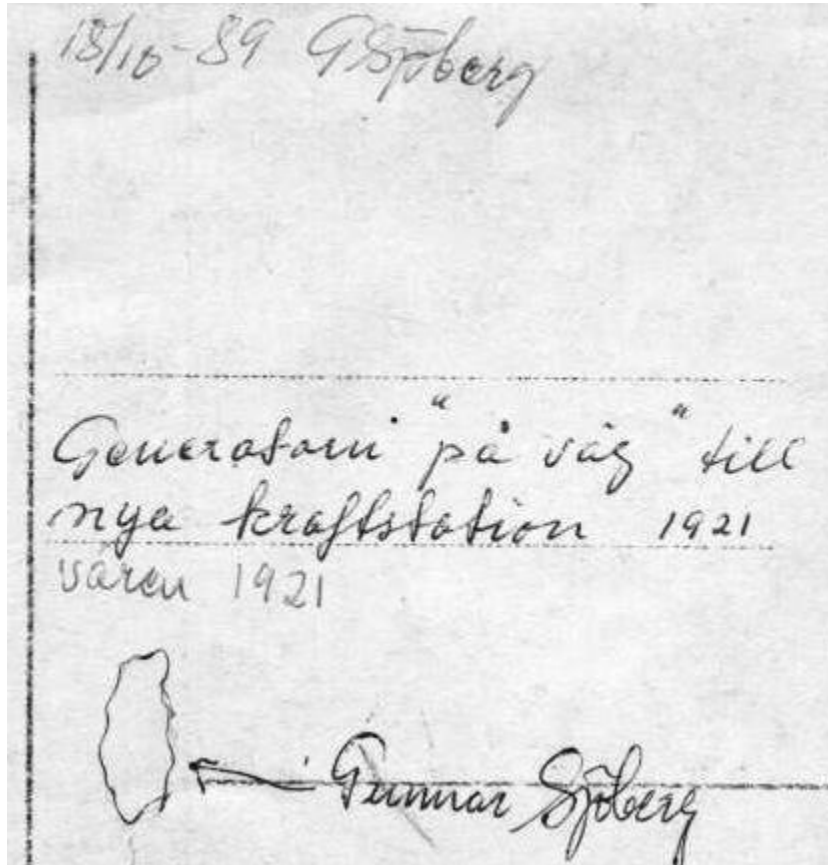 18/10-89 G Sjöberg
Generatorn "på väg" till
nya kraftstation 1921
våren 1921
Gunnar Sjöberg